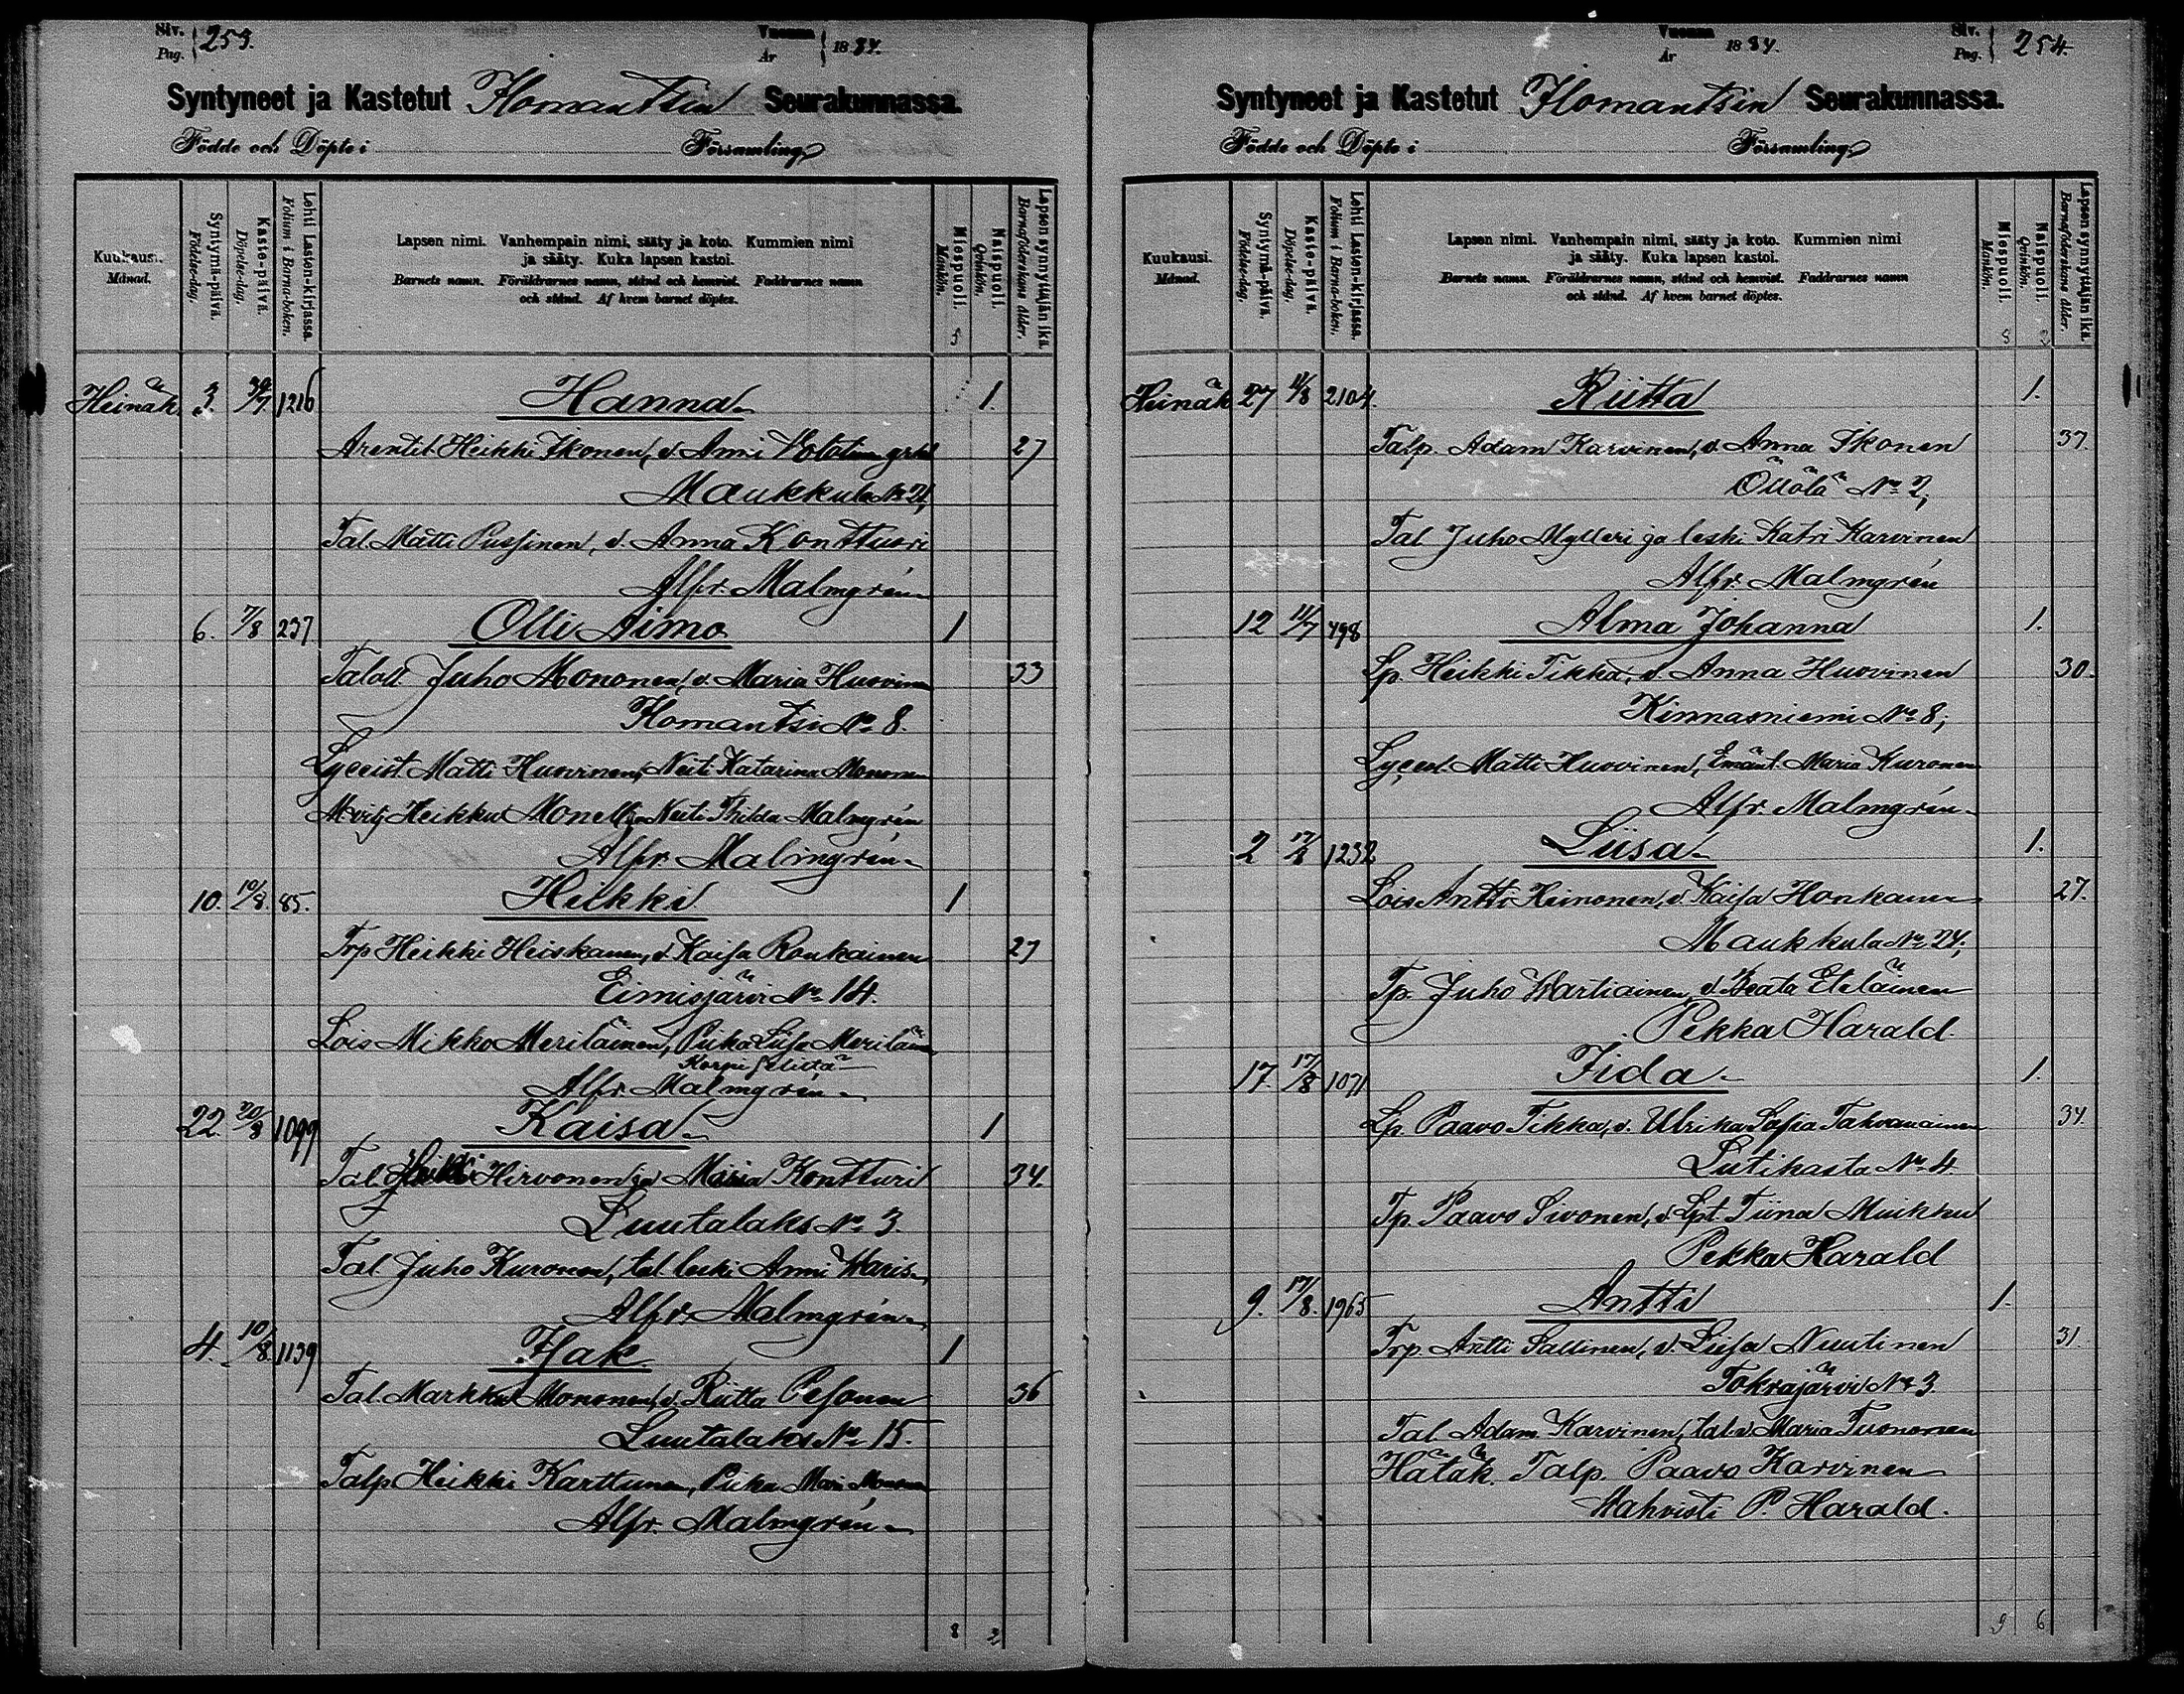 Siv. Pag. 253. Vuonna År 1884.
Syntyneet ja Kastetut Ilomantsin Seurakunnassa.
Födde och Döpte i Församling
Kuukausi. Månad.
Syntymä-päivä. Födelse-dag.
Kaste-päivä. Döpelse-dag.
Lehti Lasten-kirjassa. Folium i Barna-boken.
Lapsen nimi. Vanhempain nimi, sääty ja koto. Kummien nimi
ja sääty. Kuka lapsen kastoi.
Barnets namn. Föräldrarnes namn, stånd och hemvist. Faddrarnes namn
och stånd. Af hvem barnet döptes.
Miespuoli. Mankön.
Naispuoli. Qvinkön.
Lapsen synnyttäjän ikä. Barnaföderskans ålder.
5
Heinäk 3. 1216 Hanna 1.
Arentit. Heikki Ikonen, v. Anni 27
Maukkula No 21,
Tal. Matti Pussinen, v. Anna Konttuori
Alfr. Malmgrén
6. 7/8 237 Olli Aimo 1
Talott Juho Mononen, v. Maria Huovinen 33
Ilomantsi No 8.
Lyceist. Matti Huovinen, Neiti Katarina Mononen
Heikku Monell ja Neiti Thilda Malmgrén
Alfr. Malmgrén
10. 10/8. 85. Heikki 1
Trp Heikki Heiskanen, v. Kaisa Ronkainen 27
Eimisjärvi No 14.
Lois Mikko Meriläinen, Piika Liisa Meriläinen
Korpiselältä
Alfr. Malmgrén
22. 20/8 1099 Kaisa 1
Tal Heikki Hirvonen ja Maria Kontturi 34.
Luutalaks No 3.
Tal Juho Kuronen, tal. leski Anni Waris
Alfr. Malmgrén
4. 10/8. 1139 Isak 1
Tal. Markku Mononen, v. Riitta Pesonen 36
Luutalaks No 15.
Talp Heikki Karttunen, Piika Mari Mononen
Alfr. Malmgrén
8 2
Vuonna År 1884. Siv. Pag. 254.
Syntyneet ja Kastetut Ilomantsin Seurakunnassa.
Födde och Döpte i Församling
Kuukausi. Månad.
Syntymä-päivä. Födelse-dag.
Kaste-päivä. Döpelse-dag.
Lehti Lasten-kirjassa. Folium i Barna-boken.
Lapsen nimi. Vanhempain nimi, sääty ja koto. Kummien nimi
ja sääty. Kuka lapsen kastoi.
Barnets namn. Föräldrarnes namn, stånd och hemvist. Faddrarnes namn
och stånd. Af hvem barnet döptes.
Miespuoli. Mankön.
Naispuoli. Qvinkön.
Lapsen synnyttäjän ikä. Barnaföderskans ålder.
8 2
Heinäk 27 11/8 2104. Riitta 1.
Talp. Adam Karvinen, v. Anna Ikonen 37.
Öllölä No 2,
Tal Juho Mylleri ja leski Katri Karvinen
Alfr. Malmgrén
12 11/7 498 Alma Johanna 1.
Lp. Heikki Tikka, v. Anna Huovinen 30.
Kinnasniemi No 8,
Lyceist. Matti Huovinen, Emänt. Maria Kuronen
Alfr. Malmgrén
2 17/8 1232 Liisa 1.
Lois Antti Heinonen, v. Kaisa Honkanen 27.
Maukkula No 24,
Tp. Juho Wartiainen, v. Beata Eteläinen
Pekka Harald.
17. 17/8 1071 Iida 1.
Lp. Paavo Tikka, v. Ulrika Sofia Tahvanainen 34.
Lutikasta No 4.
Tp. Paavo Sivonen, v. Lpt. Tiina Muikku
Pekka Harald
9. 17/8. 1965 Antti 1.
Trp. Antti Sallinen, v. Liisa Nuutinen 31.
Tokrajärvi No 3.
Tal Adam Karvinen, tal. v. Maria Tuononen
Hätäk. Talp. Paavo Karvinen
Wahvisti P. Harald.
9 6